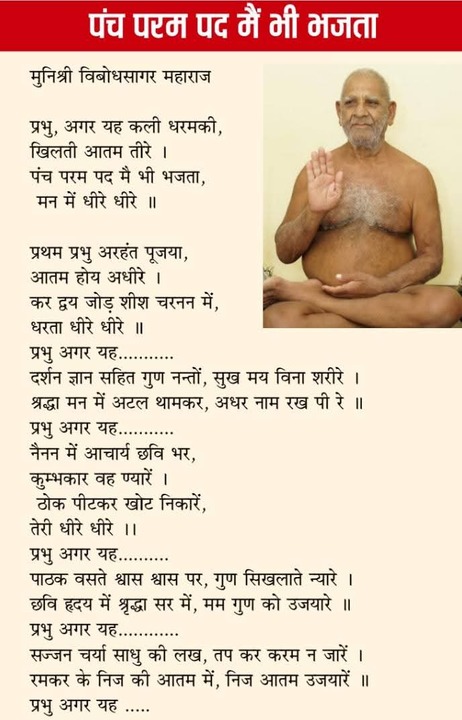 पंच परम पद मैं भी भजता
मुनिश्री विबोधसागर महाराज
प्रभु, अगर यह कली धरमकी,
खिलती आतम तीरे ।
पंच परम पद मै भी भजता,
मन में धीरे धीरे ॥
प्रथम प्रभु अरहंत पूजया,
आतम होय अधीरे ।
कर द्वय जोड़ शीश चरनन में,
धरता धीरे धीरे ॥
प्रभु अगर यह...........
दर्शन ज्ञान सहित गुण नन्तों, सुख मय विना शरीरे ।
श्रद्धा मन में अटल थामकर, अधर नाम रख पी रे ॥
प्रभु अगर यह...........
नैनन में आचार्य छवि भर,
कुम्भकार वह ण्यारें ।
ठोक पीटकर खोट निकारें,
तेरी धीरे धीरे ।।
प्रभु अगर यह..........
पाठक वसते श्वास श्वास पर, गुण सिखलाते न्यारे ।
छवि हृदय में श्रृद्धा सर में, मम गुण को उजयारे ॥
प्रभु अगर यह............
सज्जन चर्या साधु की लख, तप कर करम न जारें ।
रमकर के निज की आतम में, निज आतम उजयारें ॥
प्रभु अगर यह .....